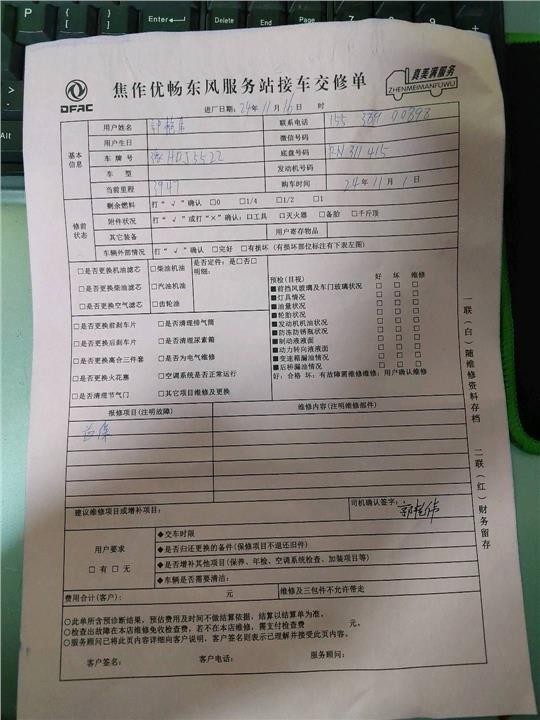 DFAC
焦作优畅东风服务站接车交修单
真美满服务
ZHENMEIMANFUWU
进厂日期：24年11月16日 时
基本信息
用户姓名
联系电话
用户生日
微信号码
车牌号 豫HDJ5522
底盘号码 RN311415
车型
发动机号码
当前里程 3947
购车时间 24年11月1日
修前状态
剩余燃料 打“√”确认 □0 □1/4 □1/2 □1
附件状况 打“√”或打“×”确认：□工具 □灭火器 □备胎 □千斤顶
其它装备 用户寄存物品
车辆外部情况 打“√”确认 □完好 □有损坏（有损坏部位标注有下表左图）
□是否更换机油滤芯 □柴油机油
是否定件：是□否□
明细：
□是否更换柴油滤芯 □汽油机油
□是否更换空气滤芯 □齿轮油
□是否更换前刹车片 □是否清理排气筒
□是否更换后刹车片 □是否清理尿素箱
□是否更换离合三件套 □是否为电气维修
□是否更换火花塞 □空调系统是否正常运行
□是否清理节气门 □其它项目维修及更换
预检（目视） 好 坏 维修
■前挡风玻璃及车门玻璃状况 □ □ □
■灯具情况 □ □ □
■油量状况 □ □ □
■轮胎状况 □ □ □
■发动机机油状况 □ □ □
■防冻防锈瓶状况 □ □ □
■制动液液面 □ □ □
■动力转向液液面 □ □ □
■变速箱漏油情况 □ □ □
■后桥漏油情况 □ □ □
好：合格 坏：有故障需维修维修：用户确认维修
报修项目（注明故障） 维修内容（注明维修部件）
首保
建议维修项目或增补项目：
司机确认签字：
用户要求
□有 □无
◆交车时限
◆是否归还更换的备件（保修项目不退还旧件）
◆是否增补其他项目（保养、年检、空调系统检查、加装项目等）
◆车辆是否需要清洁：
费用合计（客户）： 元 维修及三包件不允许带走
○此单所含预诊断结果，预估费用及时间不做结算依据，结算以结算单为准。
○检查出故障在本店维修免收检查费，若不在本店维修，需支付检查费 元。
○服务顾问已将此页内容详细向客户说明，客户签名则表示已理解并接受此页内容。
客户签名： 客户电话： 服务顾问：
一联（白）随维修资料存档
二联（红）财务留存